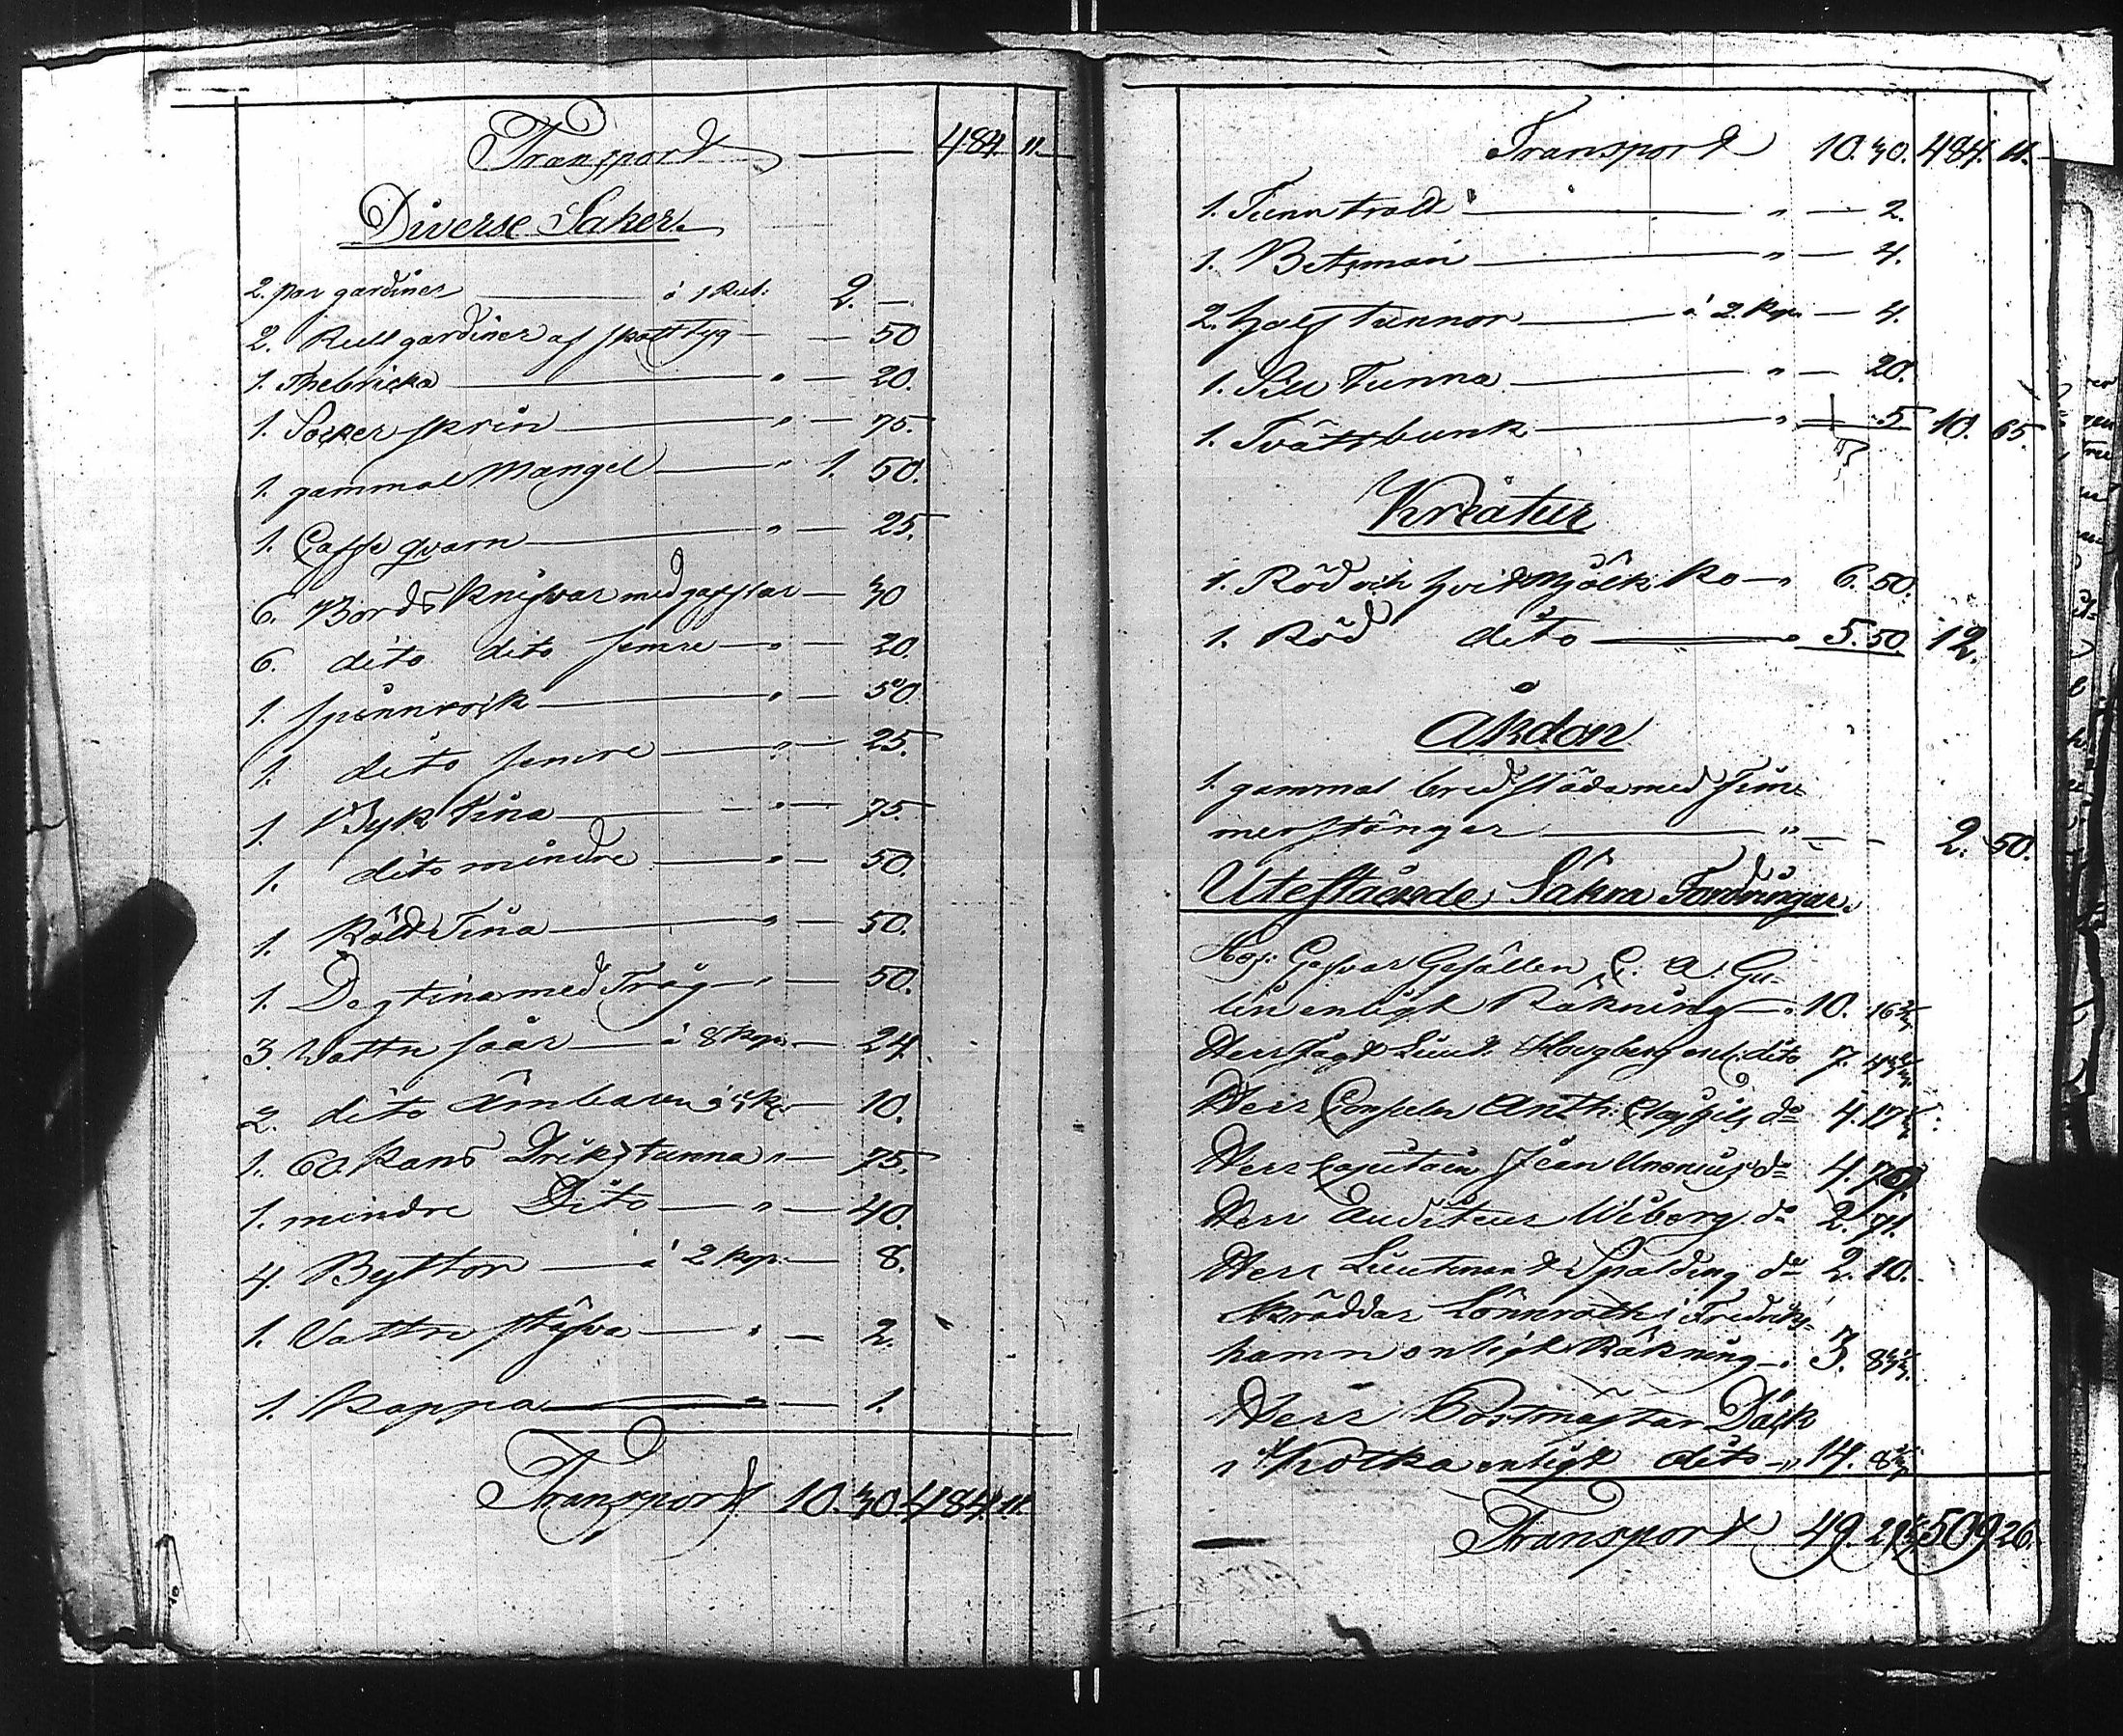 Transport — 484. 11.
Diverse Saker.
2. par gardiner — à 1 Rub: 2. —
2. Rull gardiner af skotttyg — — 50
1. Thebricka — " — 20.
1. Socker skrin — " — 75.
1. gammal Mangel — " 1. 50.
1. Caffe qvarn — " — 25.
6. Bords knifvar med gafflar — 30
6. dito dito semre — " — 20.
1. spinnrock — " — 50.
1. dito semre — " — 25.
1. Byk tina — " — 75.
1. dito mindre — " — 50.
1. Tina — " — 50.
1. Degtina med Tråg — " — 50.
3. Vattn såar — à 8 kop. — 24.
2. dito Ämbaren à 5 k. — 10.
1. 60 kans Driks tunna " — 75.
1. mindre Dito — " — 40.
4. Byttor — à 2 kop. — 8.
1. Vattn stäfva — " — 2.
1. Kappa — " — 1.
Transport 10. 30. 484. 11.
Transport 10. 30. 484. 11.
1. Tunn tratt — " — 2.
1. Betsman — " — 4.
2. half tunnor — à 2 kop. — 4.
1. Sill Tunna — " — 20.
1. Tvättbunk — " — 5 10. 65
Kreatur
1. Röd och hvit Mjölk ko — " 6. 50.
1. Röd dito — " 5. 50 12.
Åkdon
1. gammal bred släda med Tim=
merstänger — " — - 2. 50.
Utestående Säkra Fordringar.
Hos: Garfvar Gesällen C. A. Gu=
lin enligt Räkning — " 10. 16
Herr Lieut. Hougberg enl: dito 7.
Herr Anth: do 4. 17
Herr Capitain Jean Unonius do 4. 70.
Herr Auditeur Wiborg do 2. 71.
Herr Lieutenant Spalding do 2. 10.
Skräddar Lönnroth i Fredriks=
hamn enligt Räkning — " 3. 8
Herr Postmästar Däck
i Kotka enligt dito — " 14. 8
Transport 49. 509 26.